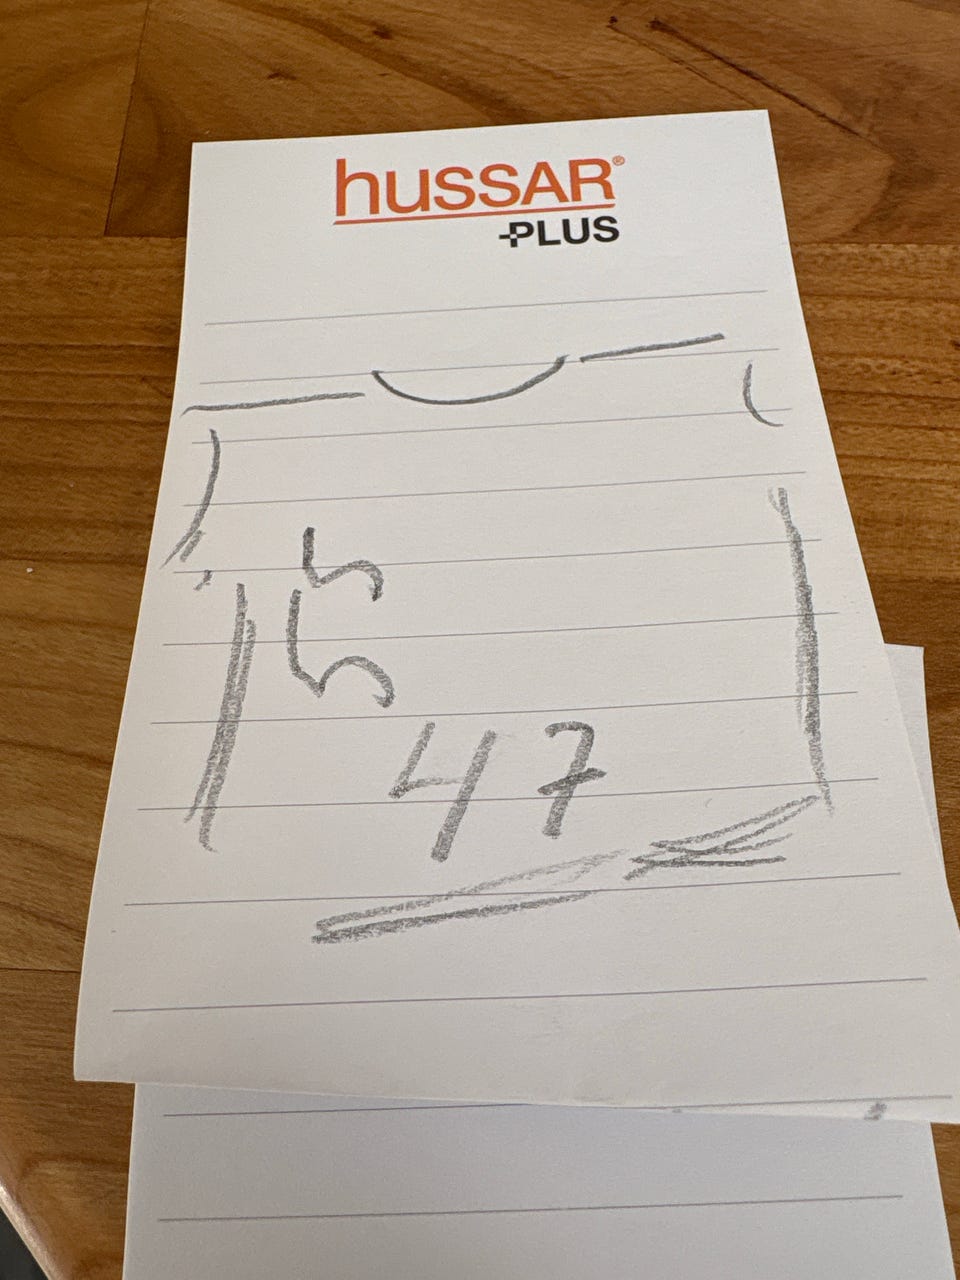 hussar®
PLUS
47